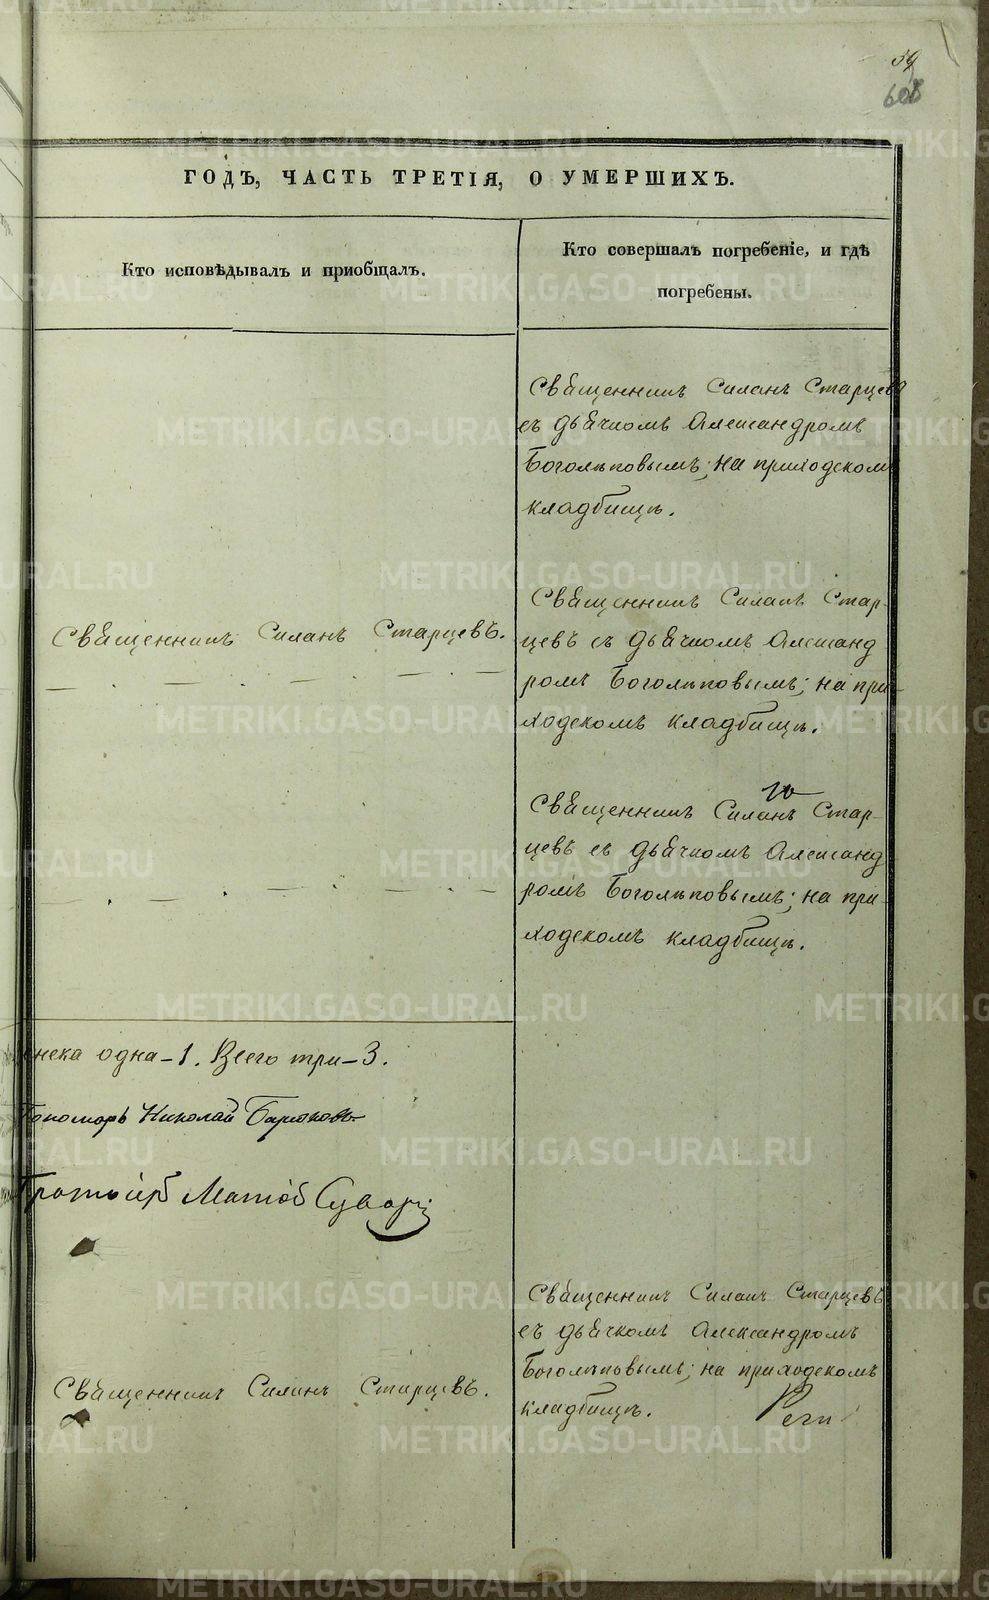 59
608
ГОДЪ, ЧАСТЬ ТРЕТІЯ, О УМЕРШИХЪ.
Кто исповѣдывалъ и пріобщалъ.
Кто совершалъ погребеніе, и гдѣ
погребены.
Священникъ Силанъ Старцевъ
съ дьячкомъ Александромъ
Боголѣповымъ; на приходскомъ
кладбищѣ.
Священникъ Силанъ Старцевъ.
Священникъ Силанъ Стар-
цевъ съ дьячкомъ Александ
ромъ Боголѣповымъ; на при-
ходскомъ кладбищѣ.
Священникъ Силанъ Стар-
цевъ съ дьячкомъ Александ
ромъ Боголѣповымъ; на при-
ходскомъ кладбищѣ.
одна – 1. Всего три – 3.
Пономарь Николай
Протоіерей
Священникъ Силанъ Старцевъ.
Священникъ Силанъ Старцевъ
съ дьячкомъ Александромъ
Боголѣповымъ; на приходскомъ
кладбищѣ.
METRIKI.GASO-URAL.RU